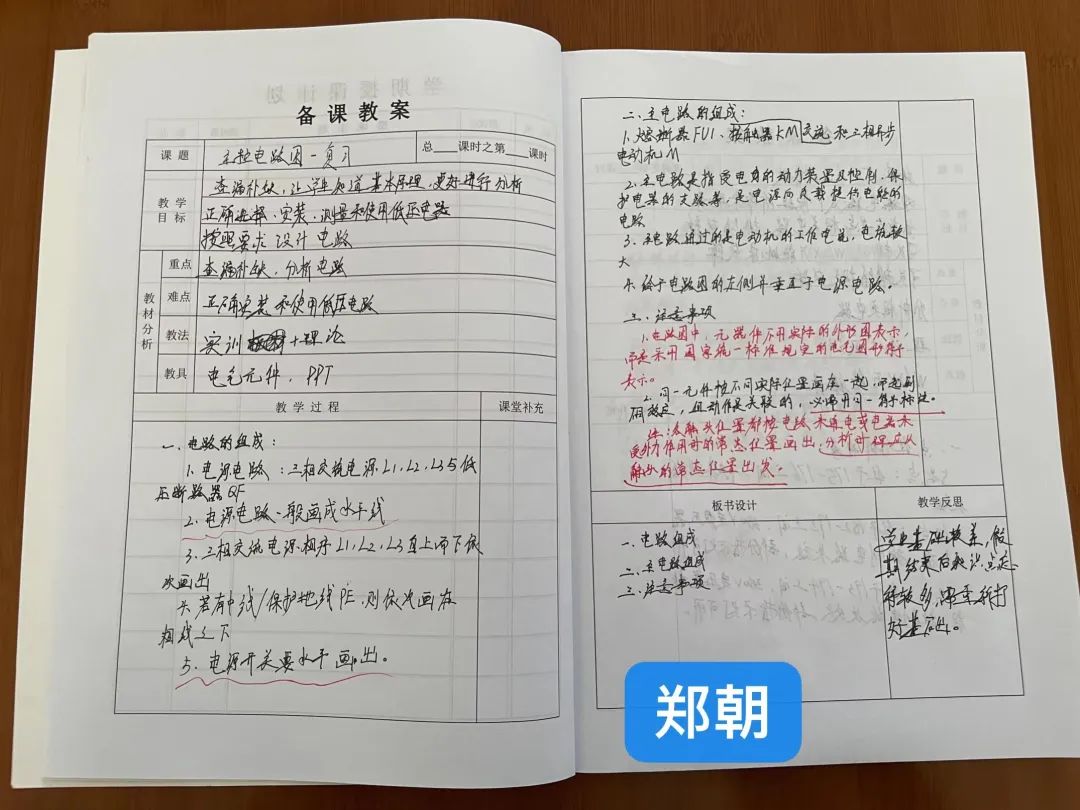 备课教案
课题 主控电路图-复习 总 课时之第 课时
教学目标
查漏补缺,让学生知道基本原理,更好进行分析
正确选择、安装、测量和使用低压电路
按照要求设计电路
教材分析
重点 查漏补缺,分析电路
难点 正确安装和使用低压电路
教法 实训 +理论
教具 电气元件,PPT
教学过程 课堂补充
一、电路的组成:
1、电源电路:三相交流电源L1、L2、L3与低
压断路器QF
2、电源电路一般画成水平线
3、三相交流电源相序L1、L2、L3自上而下依
次画出
4、若有中线/保护地线PE,则依次画在
相线之下
5、电源开关要水平画出。
二、主电路的组成:
1、熔断器FU1、接触器KM交流和三相异步
电动机M
2、主电路是指受电的动力装置及控制、保
护电器的支路等,是电源向负载提供电能的
电路
3、主电路通过的是电动机的工作电流,电流较
大
4、绘于电路图的左侧并垂直于电源电路。
三、注意事项
1、电路图中,元器件不用实际的外形图表示,
而是采用国家统一标准规定的电气图形符号
表示。
2、同一元件按不同实际位置画在一起,而起到
因效应,且动作是关联的,必需用同一符号标注。
注:各触头位置都按电路未通电或电器未
受外力作用时的常态位置画出,分析时应从
触头的常态位置出发。
板书设计 教学反思
一、电路组成
二、主电路组成
三、注意事项
学生基础较差,假
期结束后知识点忘
得较多,需重新打
好基础。
郑朝